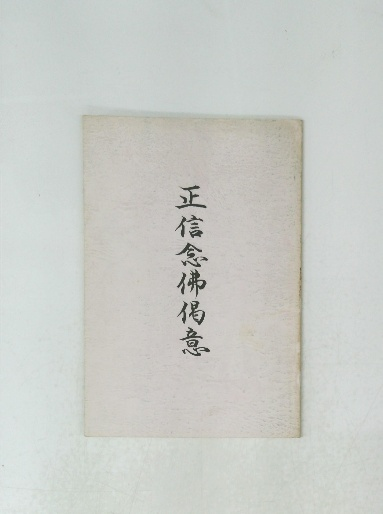 正信念佛偈意